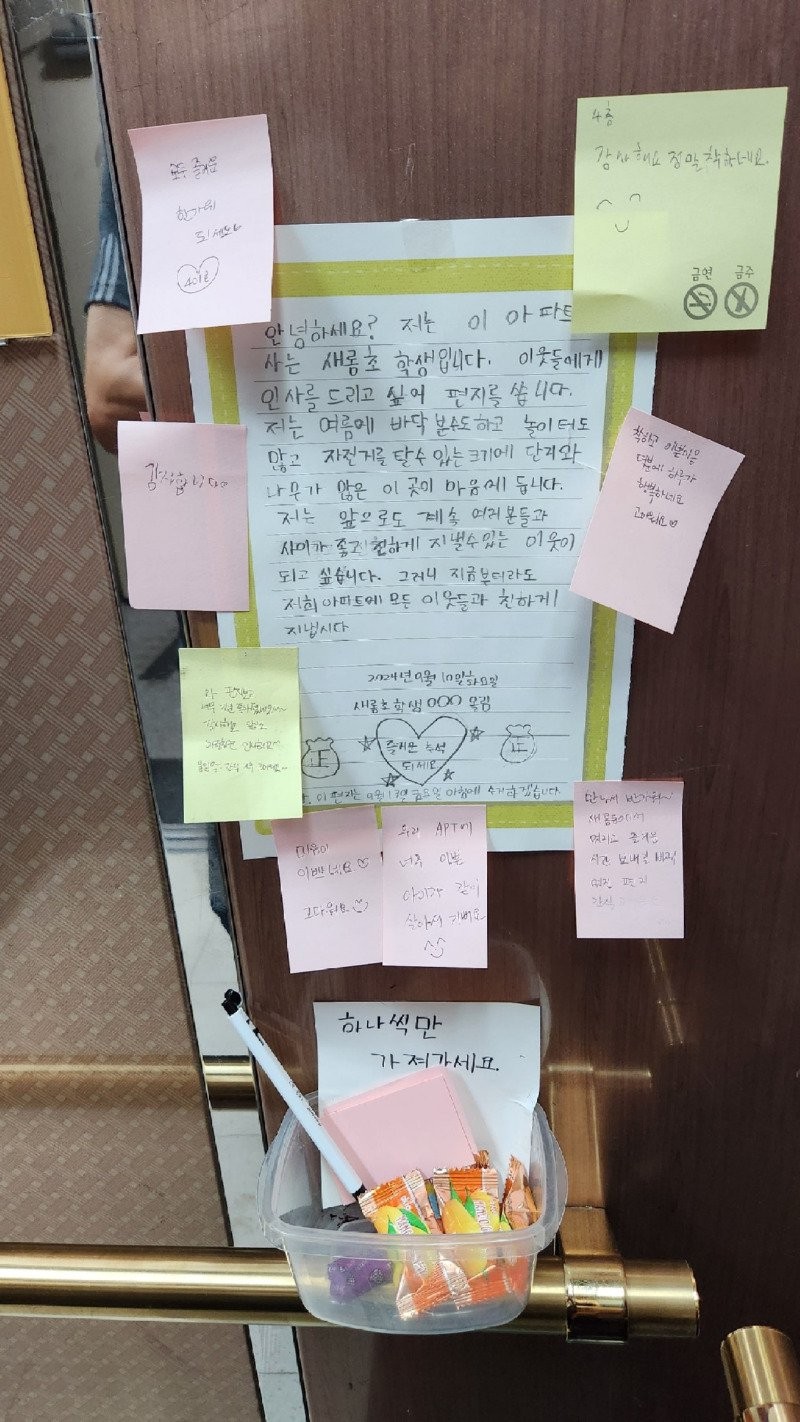 모두 즐거운
한가위
되세요
401호
4층
감사해요 정말 착하네요.
금연 금주
안녕하세요? 저는 이 아파트
사는 새롬초 학생입니다. 이웃들에게
인사를 드리고 싶어 편지를 씁니다.
저는 여름에 바닥 분수도하고 놀이터도
많고 자전거를 탈수 있는크기에 단지와
나무가 많은 이 곳이 마음에 듭니다.
저는 앞으로도 계속 여러분들과
사이가 좋고 친하게 지낼수있는 이웃이
되고 싶습니다. 그러니 지금부터라도
저희아파트에 모든 이웃들과 친하게
지냅시다
2024년 9월 10일 화요일
새롬초학생 OOO 올림
즐거운 추석
되세요
이 편지는 9월 13일 금요일 아침에 수거하겠습니다.
감사합니다
착하고 이쁜마음
덕분에 하루가
행복하네요
고마워요
마음이
이쁘네요
고마워요
우리 APT에
너무 이쁜
아이가 같이
살아서 기뻐요
만나서 반가워
새롬초에서
즐거운
시간 보내길 바래
편지
하나씩만
가져가세요.